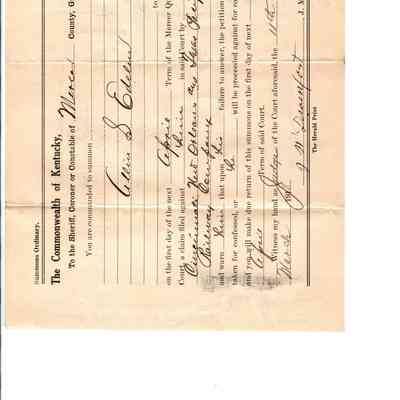 Summons Ordinary.
The Commonwealth of Kentucky,
To the Sheriff, Coroner or Constable of Mercer County, G
You are commanded to summon
Allin S Edelen
to
on the first day of the next April Term of the Mercer Qu
Court, a claim filed against him in said Court by
Cincinnati New Orleans and Texas
Railway Company
and warn him that upon his failure to answer, the petition
taken for confessed, or he will be proceeded against for co
and you will make due return of this summons on the first day of next
April Term of said Court.
Witness my hand as Judge of the Court aforesaid, the 11th
March 190
J. M. Davenport J.
The Herald Print